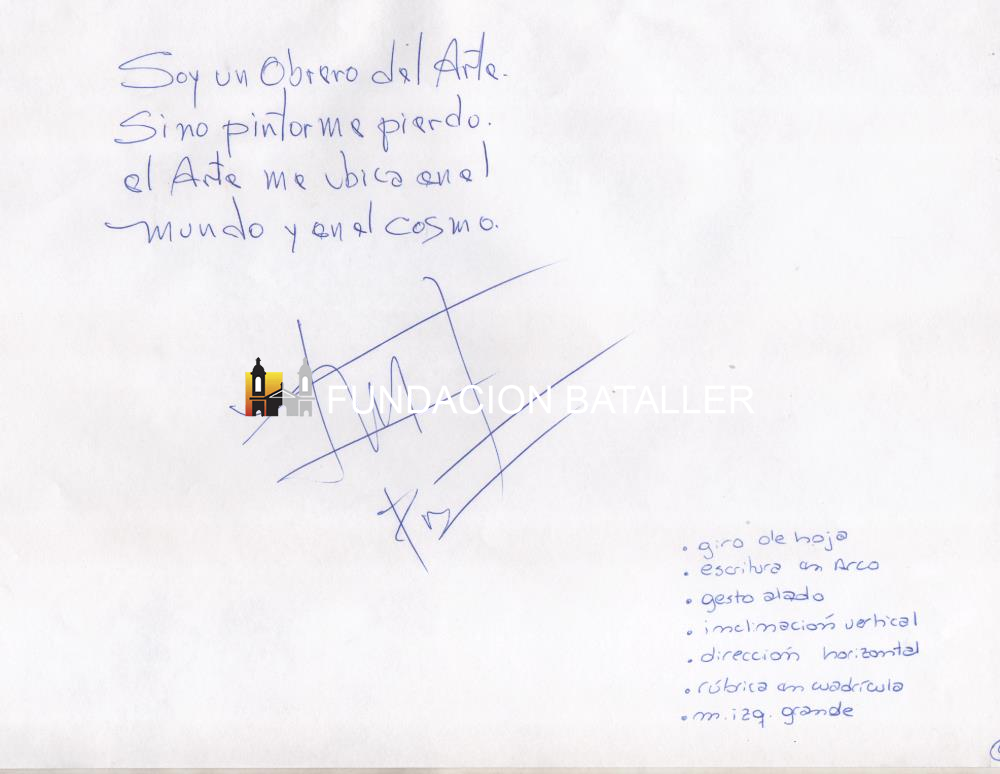 Soy un Obrero del Arte.
Si no pinto me pierdo.
el Arte me ubica en el
mundo y en el cosmo.
FUNDACION BATALLER
• giro de hoja
• escritura en Arco
• gesto alado
• inclinación vertical
• dirección horizontal
• rúbrica en cuadrícula
• m. izq. grande